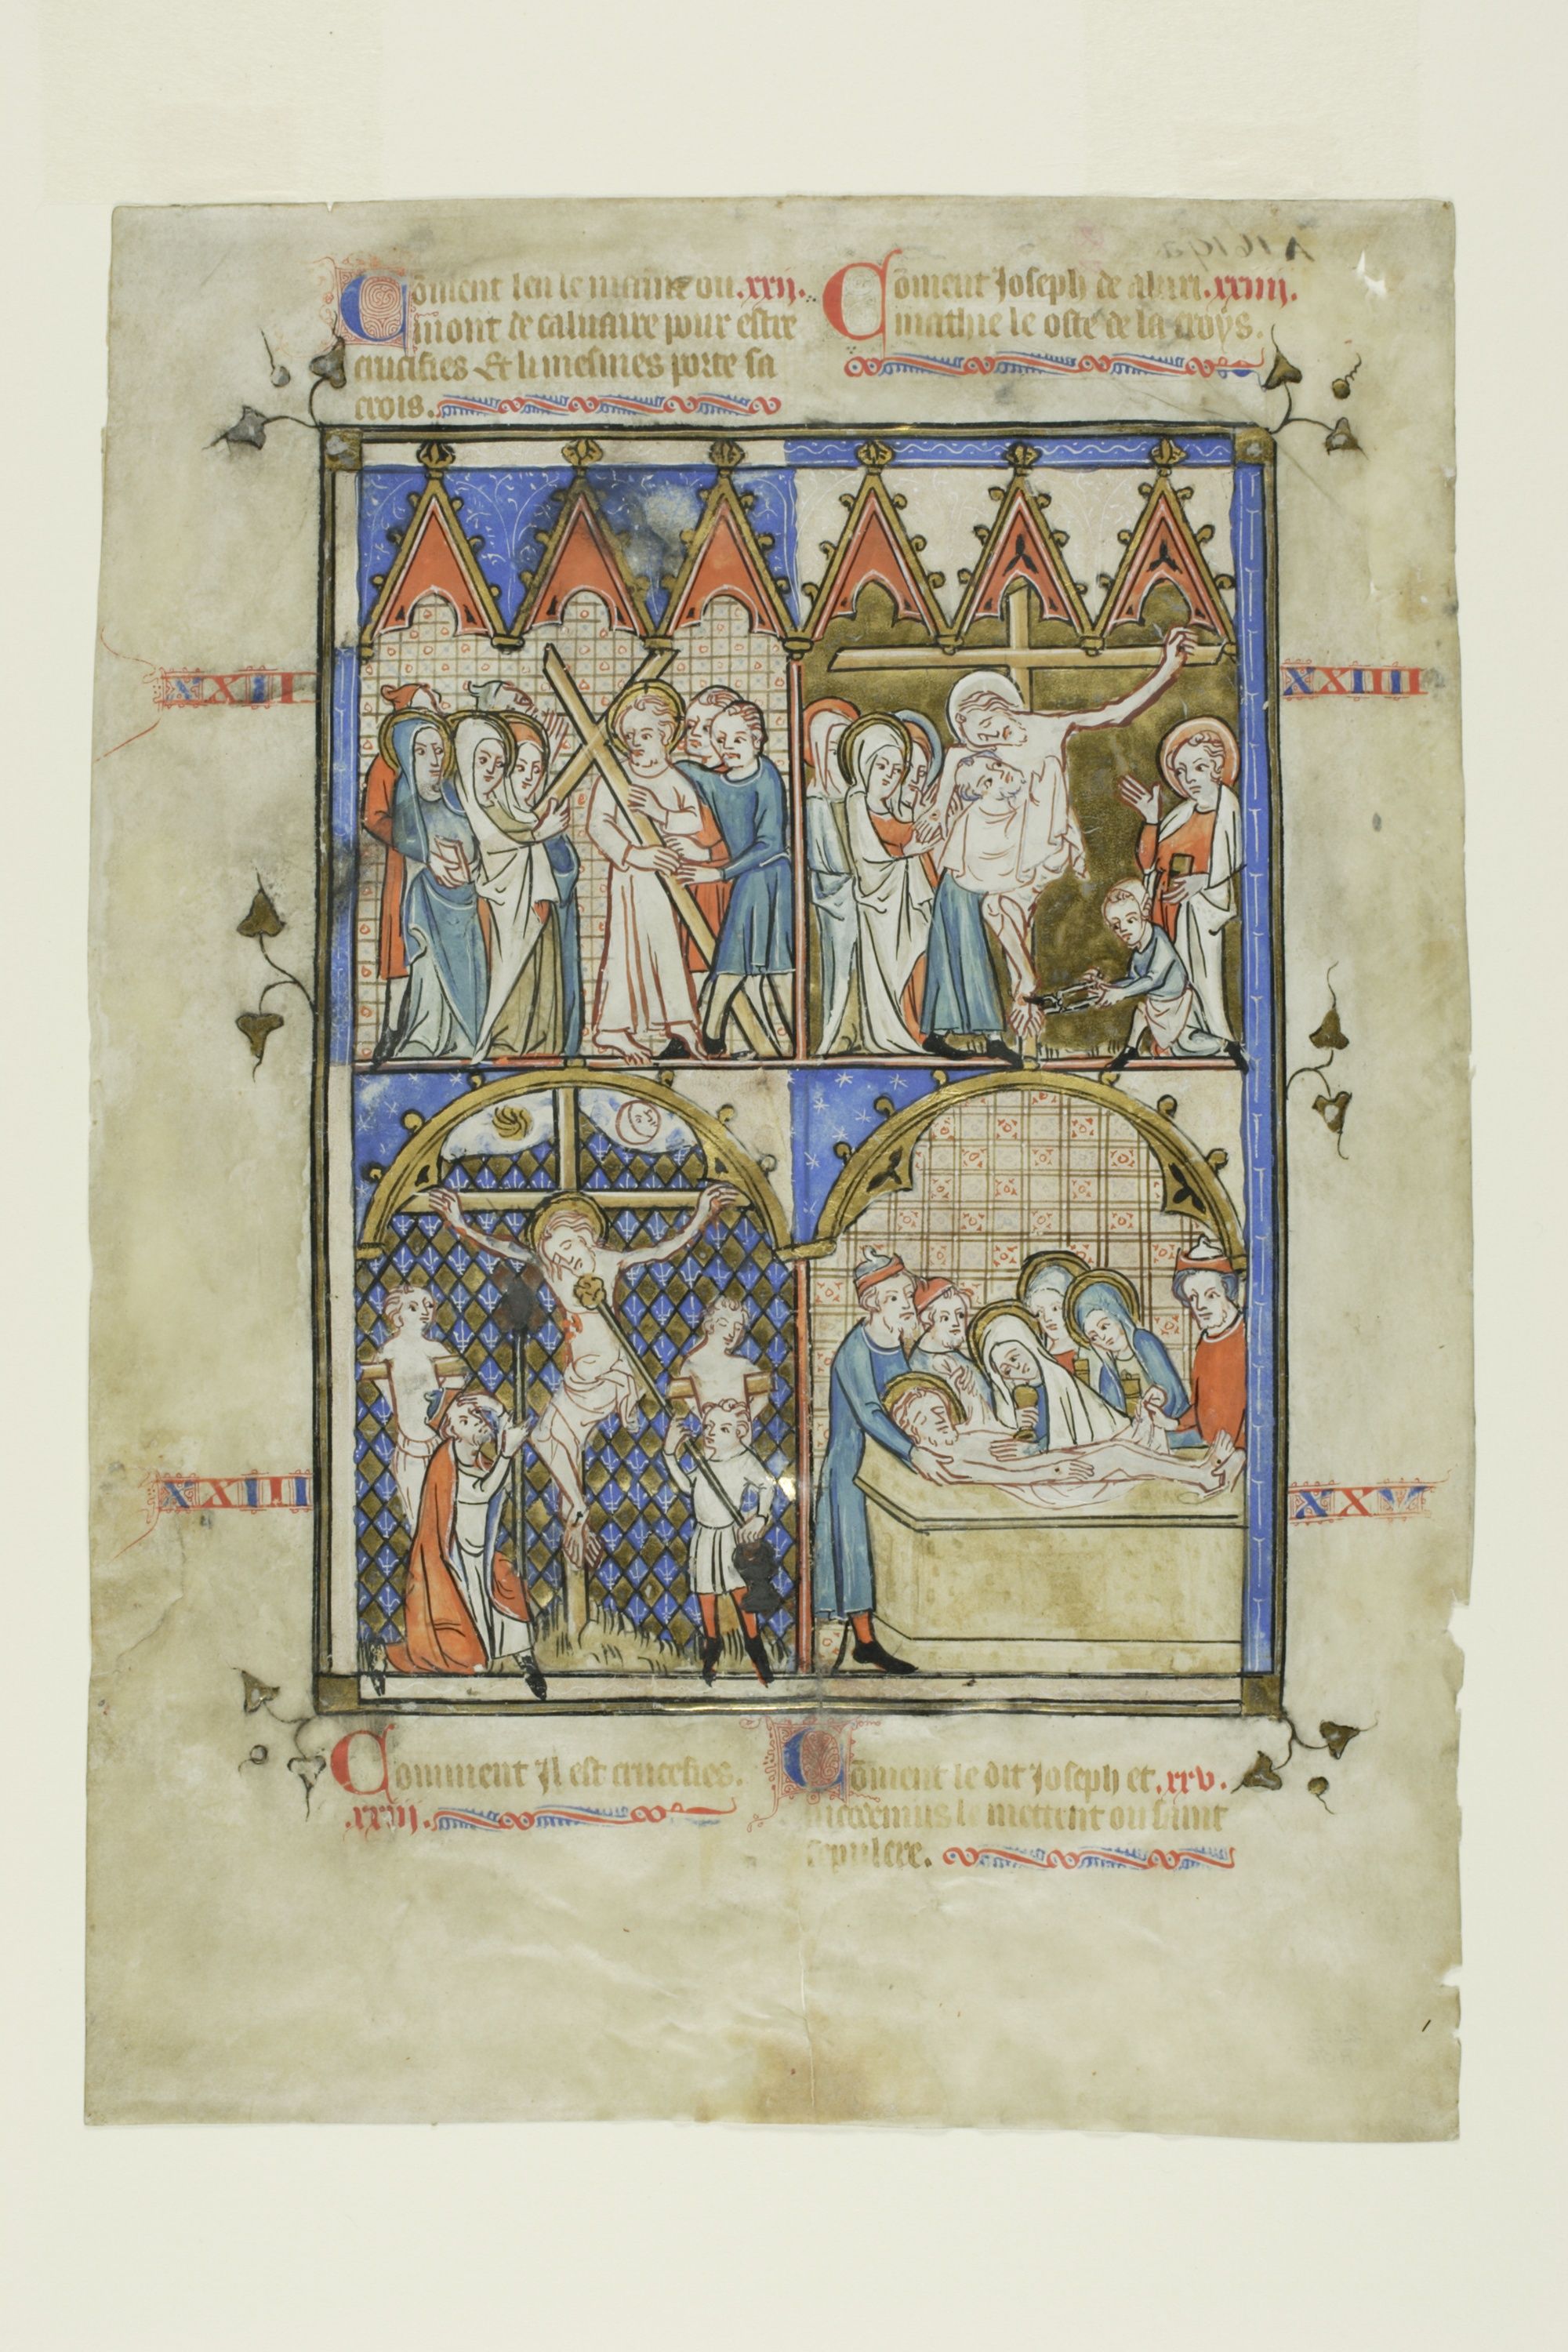 Cõment len le maine ou .xxii.
mont de caluaire pour estre
crucifies & li mesmes porte sa
crois.
Cõment Joseph de abari .xxiiii.
mathie le oste de la croys.
XXII
XXIIII
XXIII
XXV
Comment Jl est crucefies.
.xxiii.
Cõment le dit Joseph et .xxv.
nicodemus le mettent ou saint
sepulcre.